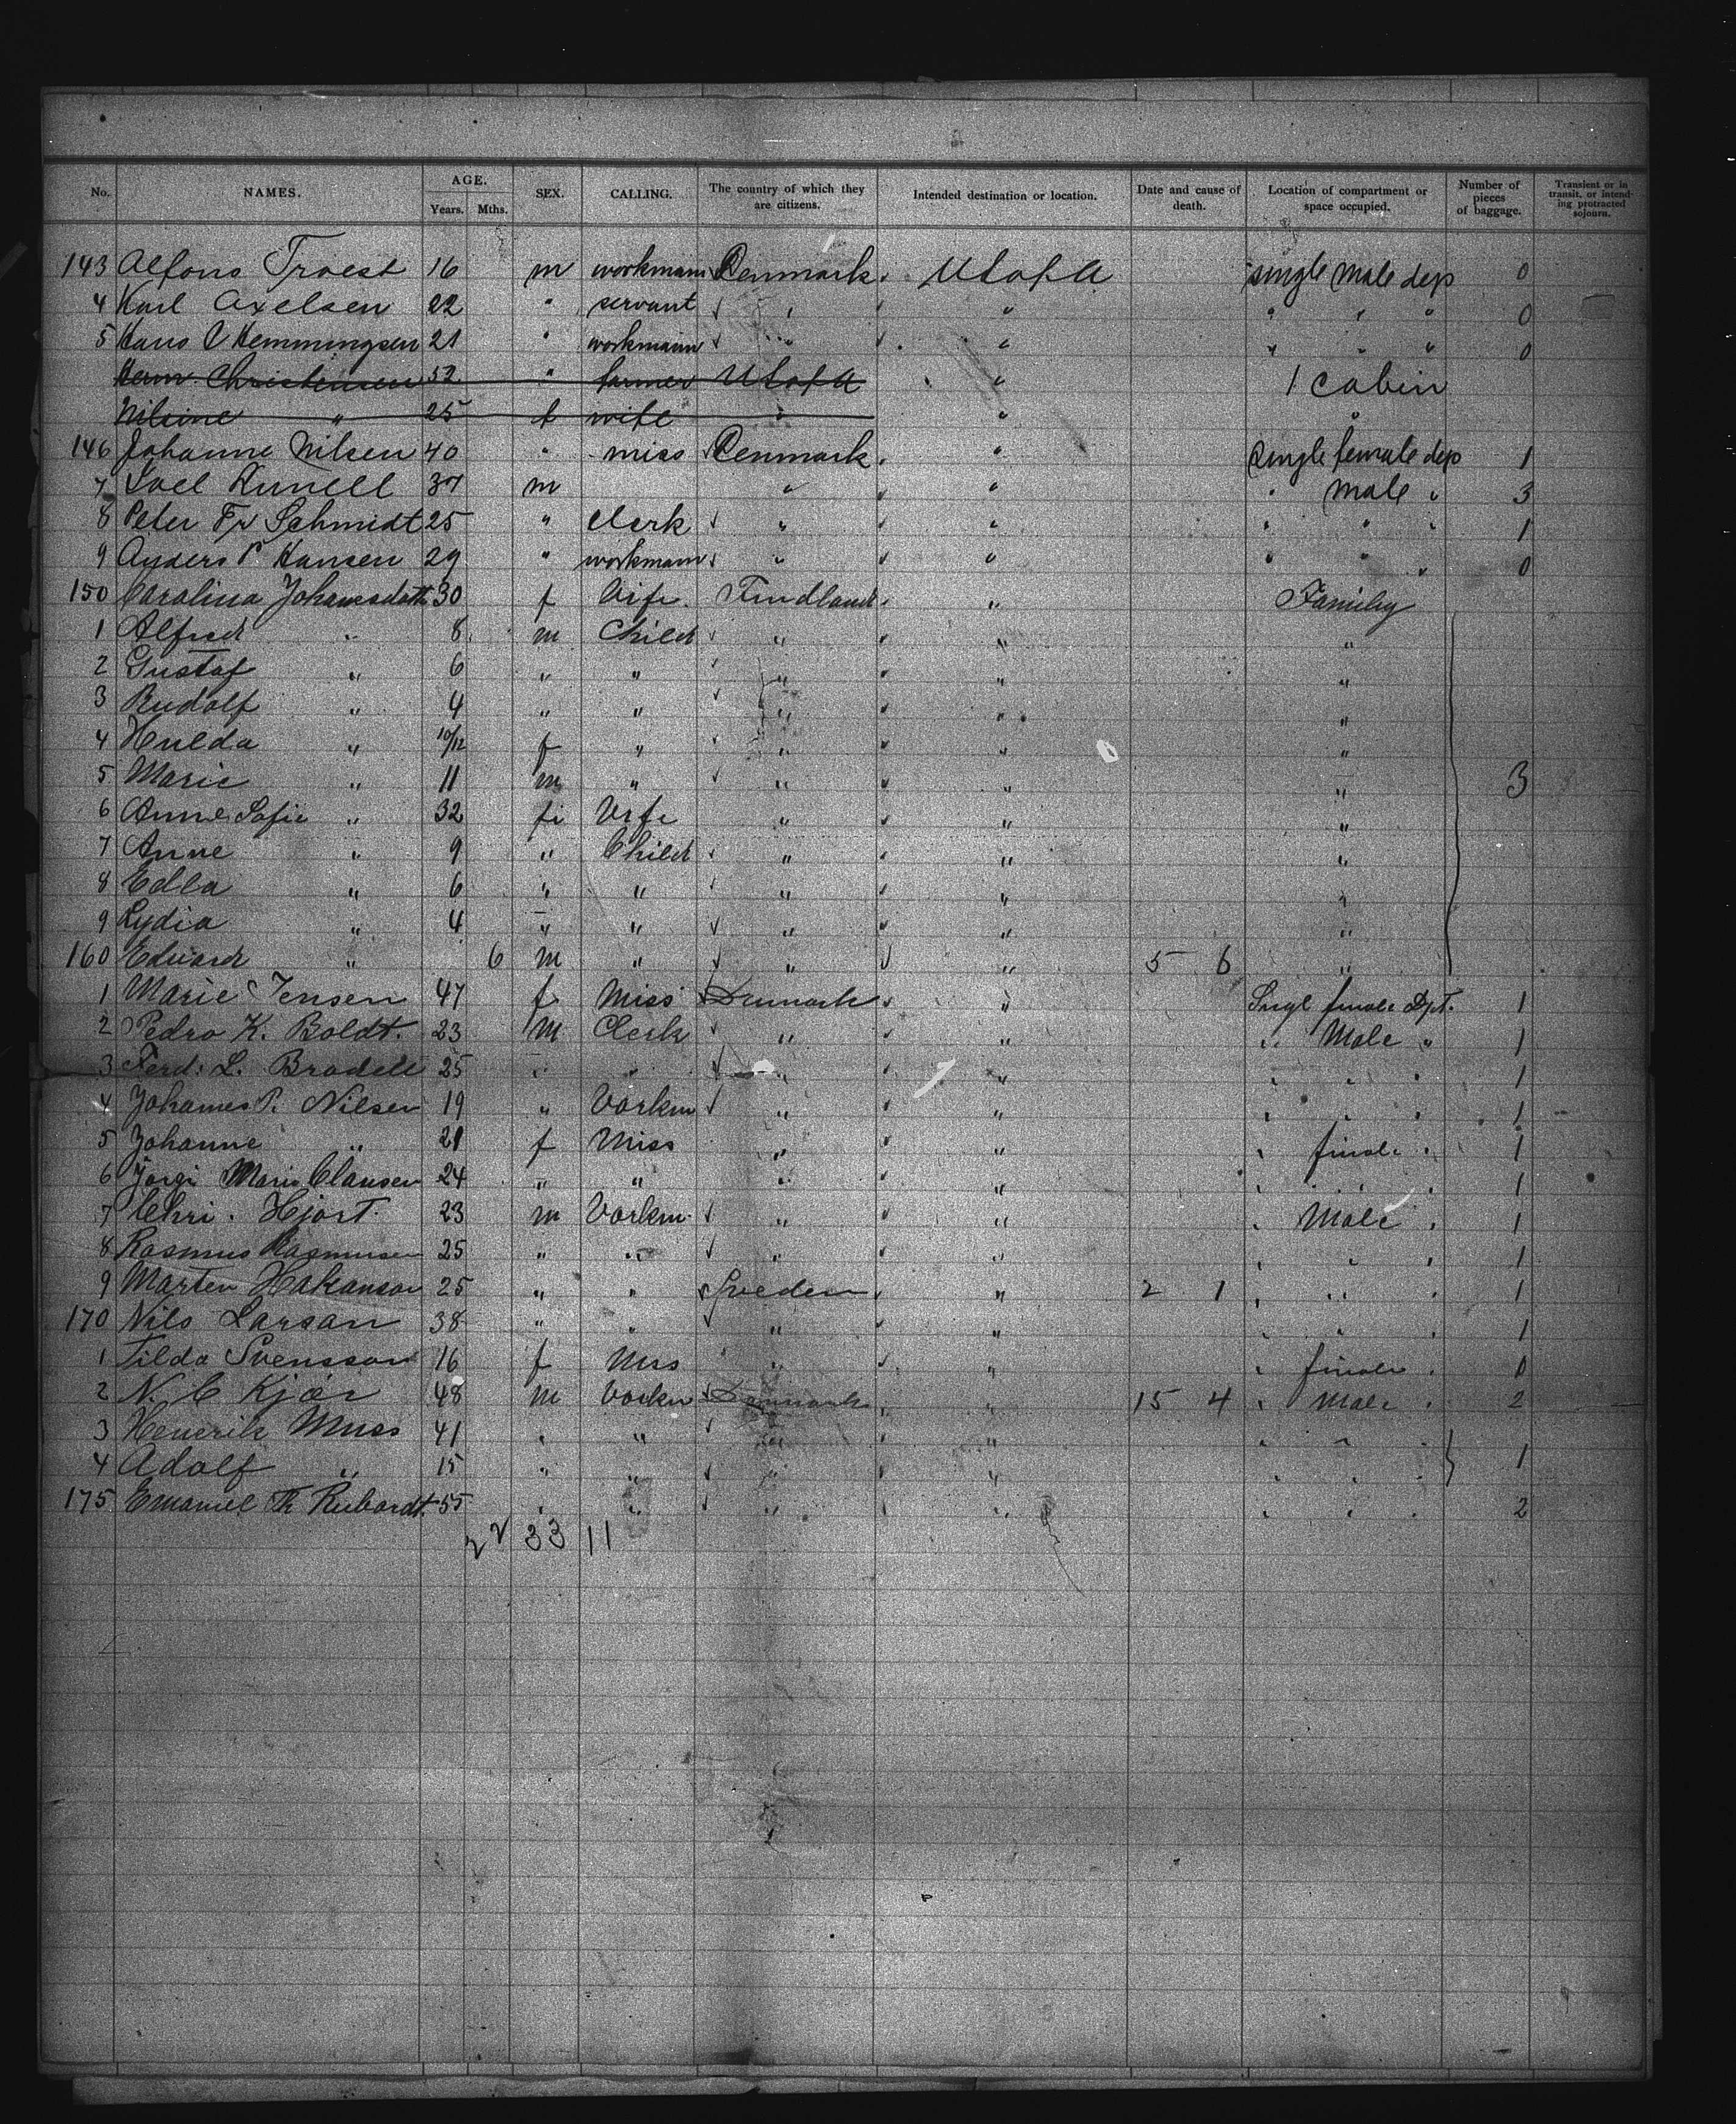 No. NAMES. AGE. Years. Mths. SEX. CALLING. The country of which they are citizens. Intended destination or location. Date and cause of death. Location of compartment or space occupied. Number of pieces of baggage. Transient or in transit, or intending protracted sojourn.
143 Alfons Troest 16 m workmann Denmark U S of A single male dep 0
4 Karl Axelsen 22 " servant " " " " " 0
5 Hans V Hemmingsen 21 " workmann " " " " " 0
Herm. Christensen 52 " farmer U S of A " 1 cabin
Nilsine " 25 f wife " " "
146 Johanne Nilsen 40 " miss Denmark " single female dep 1
7 Joel Kunell 37 m " " " male " 3
8 Peter Fr Schmidt 25 " clerk " " " " " 1
9 Anders P Hansen 29 " workmann " " " " " 0
150 Carolina Johansdott 30 f Vife Findland " Family
1 Alfred " 8 m Child " " "
2 Gustaf " 6 " " " " "
3 Rudolf " 4 " " " " "
4 Hulda " 10/12 f " " " "
5 Marie " 11 m " " " " 3
6 Anne Sofie " 32 f Vife " " "
7 Anne " 9 " Child " " "
8 Edla " 6 " " " " "
9 Lydia " 4 " " " " "
160 Edvard " 6 m " " " 5 6 "
1 Marie Jensen 47 f Miss Denmark " Singl female Dpt. 1
2 Pedro K. Boldt. 23 m Clerk " " " Male " 1
3 Ferd. L. Bradell 25 " " " " " " " 1
4 Johannes P. Nilsen 19 " Vorkm " " " " " 1
5 Johanne " 21 f Miss " " " female " 1
6 Jörgi Marie Clausen 24 " " " " " " " 1
7 Chri. Hjort. 23 m Vorkm. " " " Male " 1
8 Rasmus Rasmussen 25 " " " " " " " 1
9 Marten Hakanson 25 " " Sveden " 2 1 " " " 1
170 Nils Larson 38 " " " " " " " 1
1 Tilda Svensson 16 f Miss " " " female " 0
2 N. C Kjær 48 m Vorkm Denmark " 15 4 " Male " 2
3 Henerik Muss 41 " " " " " " " 1
4 Adolf " 15 " " " " " " "
175 Emanuel Th 55 " " " " " " " 2
22 33 11